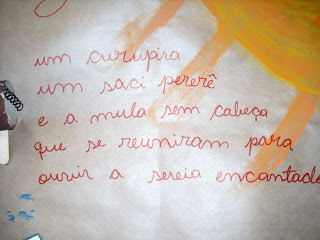 um curupira
um saci pererê
e a mula sem cabeça
que se reuniram para
ouvir a sereia encantada